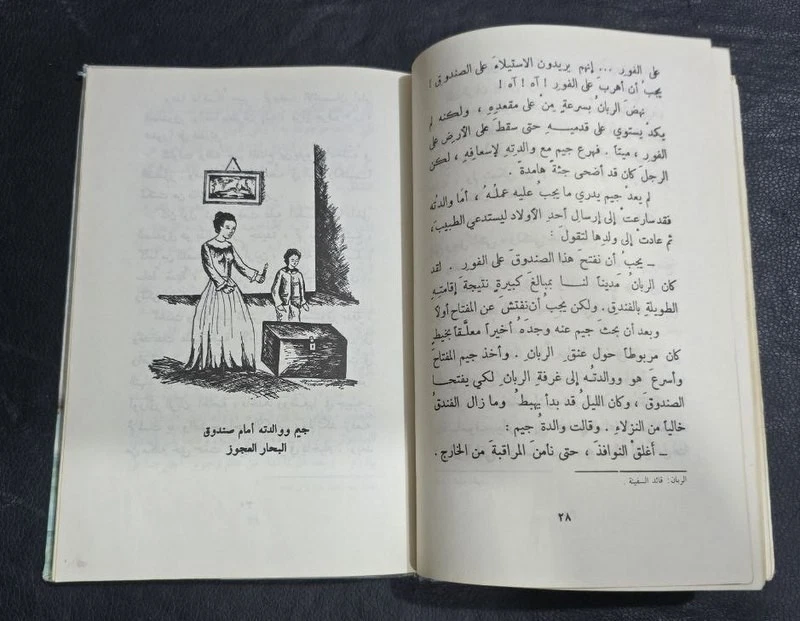 على الفور ... إنهم يريدون الاستيلاءَ على الصندوق !
يجبُ أن أهربَ على الفور ! آه ! آه !
نهضَ الربانُ بسرعةٍ مِنْ على مقعدِهِ ، ولكنه لم
يكدْ يستوي على قدميــه حتى سقطَ على الأرضِ على
الفور ، ميتاً . فهرعَ جيم مع والدتِهِ لإسعافِهِ ، لكن
الرجل كان قد أضحى جثةً هامدةً .
لم يعدْ جيم يدري ما يجبُ عليه عملُهُ ، أما والدتُه
فقد سارعتْ إلى إرسال أحدِ الأولاد ليستدعي الطبيبَ ،
ثم عادتْ إلى ولدِها لتقولَ :
ــ يجبُ أن نفتحَ هذا الصندوقَ على الفور . لقد
كان الربانُ مَديناً لنــا بمبالغَ كبيرةٍ نتيجةَ إقامتِهِ
الطويلةِ بالفندق . ولكن يجبُ أن نفتشَ عن المفتاح أولاً
وبعد أن بحثَ جيم عنه وجدَهُ أخيراً معلَّقاً بخيطٍ
كان مربوطاً حول عنقِ الربانِ . وأخذ جيم المفتاحَ
وأسرعَ هو ووالدتُه إلى غرفةِ الربانِ لكي يفتحــا
الصندوقَ ، وكان الليلُ قد بدأ يهبطُ وما زال الفندقُ
خالياً من النزلاءِ . وقالت والدةُ جيم :
ــ أغلقْ النوافذَ ، حتى نأمنَ المراقبةَ من الخارج .
الربان: قائد السفينة .
٢٨
جيم ووالدته أمام صندوق
البحار العجوز